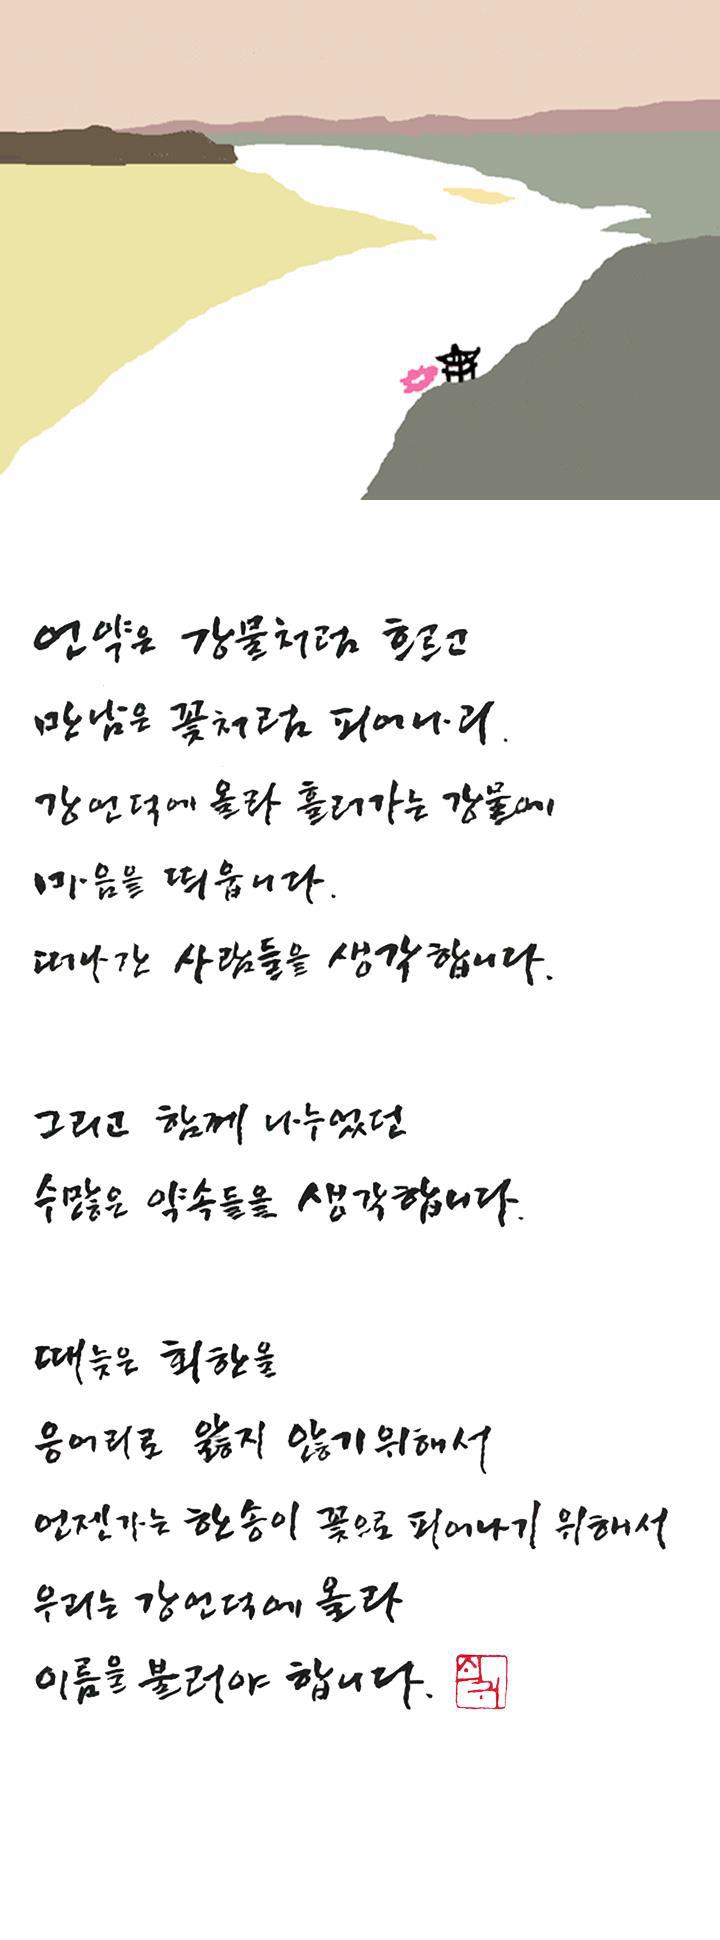 언약은 강물처럼 흐르고
만남은 꽃처럼 피어나리.
강언덕에 올라 흘러가는 강물에
마음을 띄웁니다.
떠나간 사람들을 생각합니다.
그리고 함께 나누었던
수많은 약속들을 생각합니다.
때늦은 회한을
응어리로 앓지 않기위해서
언젠가는 한송이 꽃으로 피어나기 위해서
우리는 강언덕에 올라
이름을 불러야 합니다.